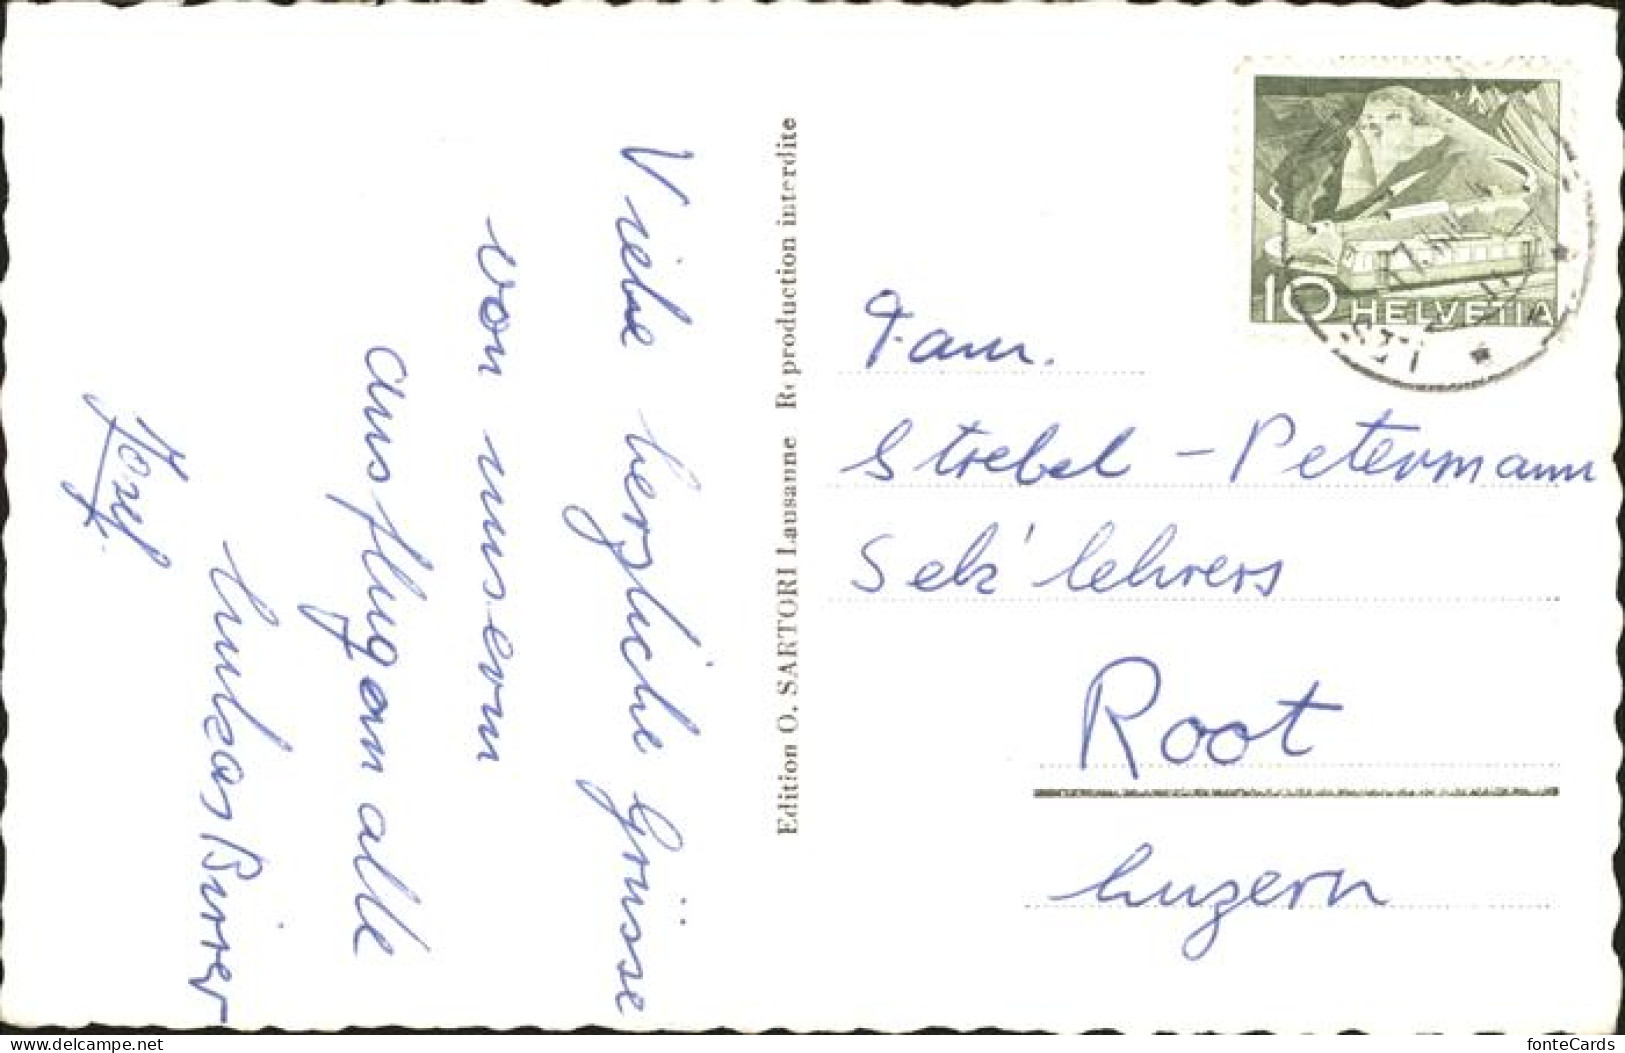 Viele herzliche Grüsse
von unserm
Ausflug an alle
Lukas Birrer
Josef
Edition O. SARTORI Lausanne Reproduction interdite
10 HELVETIA
Fam.
Strebel - Petermann
Sek' lehrers
Root
Luzern
fonteCards